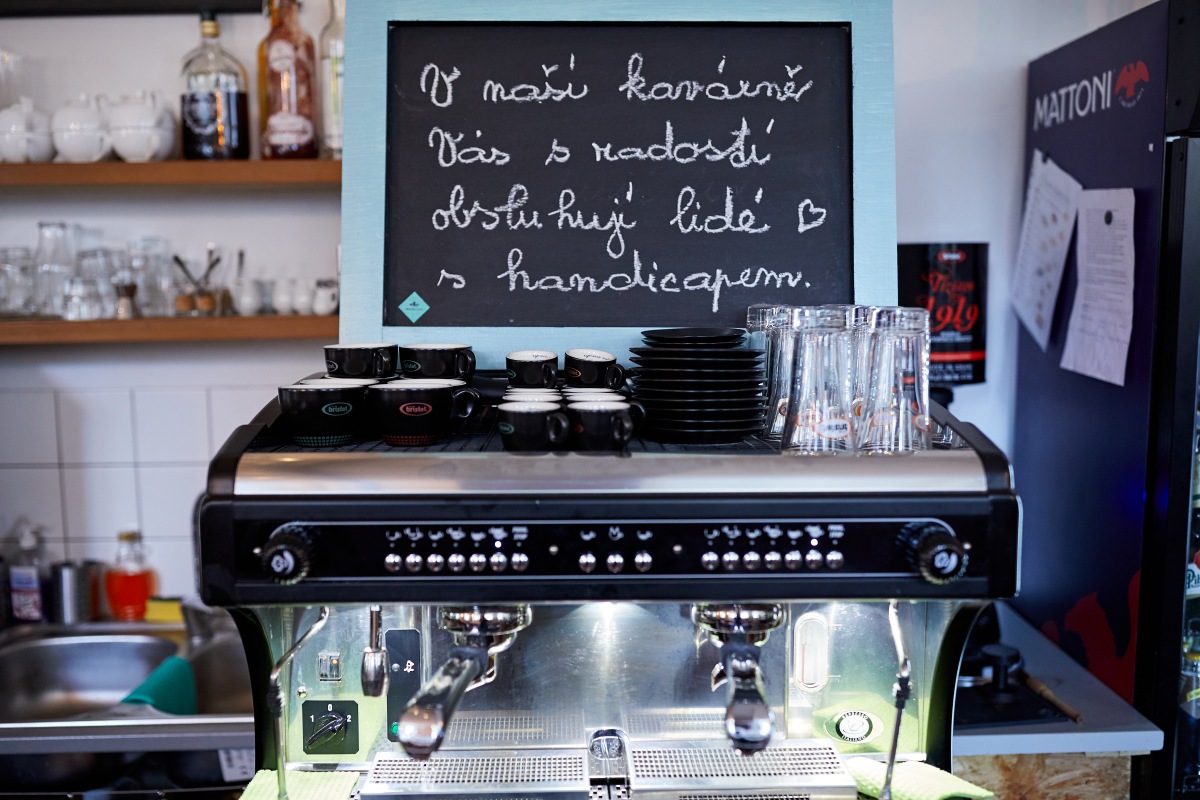 V naší kavárně
Vás s radostí
obsluhují lidé ♡
s handicapem.
MATTONI
1919
bristot
bristot
1 0 2